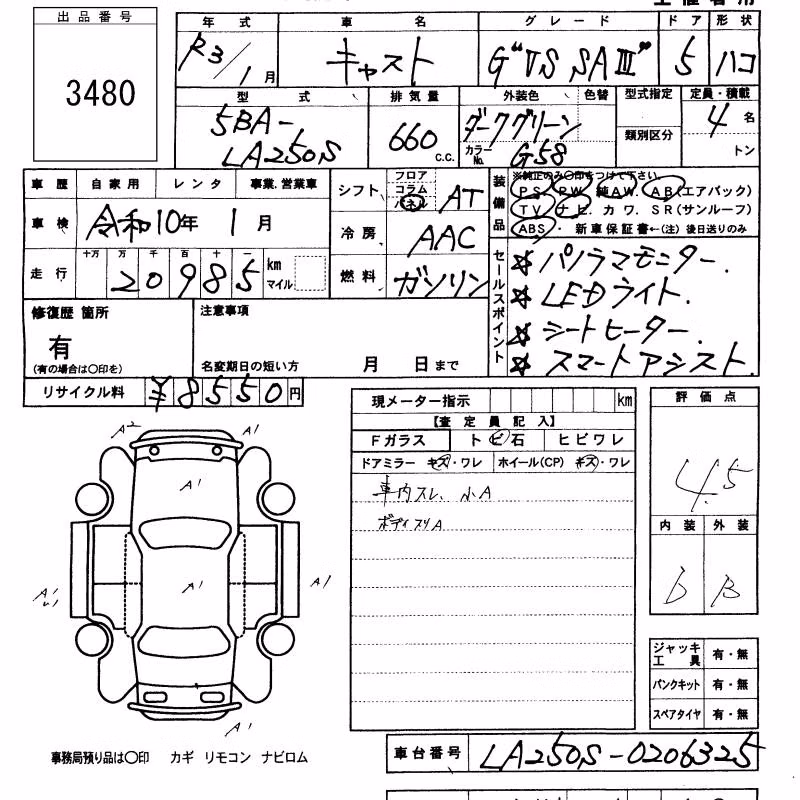 出品番号
3480
年式 車名 グレード ドア 形状
R3/1月 キャスト G"VS SAⅢ" 5 ハコ
型式 排気量 外装色 色替 型式指定 定員・積載
5BA-
LA250S
660 c.c.
ダークグリーン
カラーNo. G58
類別区分
4名
トン
車歴 自家用 レンタ 事業.営業車
車検 令和10年 1月
走行 十万 万 千 百 十 一
20985 km
マイル
シフト フロア コラム パネル AT
冷房 AAC
燃料 ガソリン
装備品
※純正のみ〇印をつけて下さい。
PS. PW. 純AW. AB(エアバック)
TV. ナビ. カワ. SR(サンルーフ)
ABS. 新車保証書←(注)後日送りのみ
セールスポイント
☆パノラマモニター.
☆LEDライト.
☆シートヒーター.
☆スマートアシスト.
修復歴 箇所
有
(有の場合は〇印を)
注意事項
名変期日の短い方 月 日まで
リサイクル料 ¥8550円
現メーター指示 km
【査定員記入】
Fガラス トビ石 ヒビワレ
ドアミラー キズ・ワレ ホイール(CP) キズ・ワレ
車内スレ、小A
ボディスリA
評価点
4.5
内装 外装
b B
A2 A1
A1
A1
A1
A1
A1
ジャッキ工具 有・無
パンクキット 有・無
スペアタイヤ 有・無
事務局預り品は〇印 カギ リモコン ナビロム
車台番号 LA250S-0206325